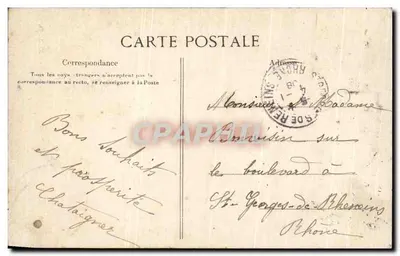 CARTE POSTALE
Correspondance
Tous les pays étrangers n'acceptent pas la
correspondance au recto, se renseigner à la Poste
Bons souhaits
et prospérité
Chataigner
Adresse
Monsieur & Madame
sur
le boulevard à
St-Georges-de-Reneins
Rhône
CPAPHIL